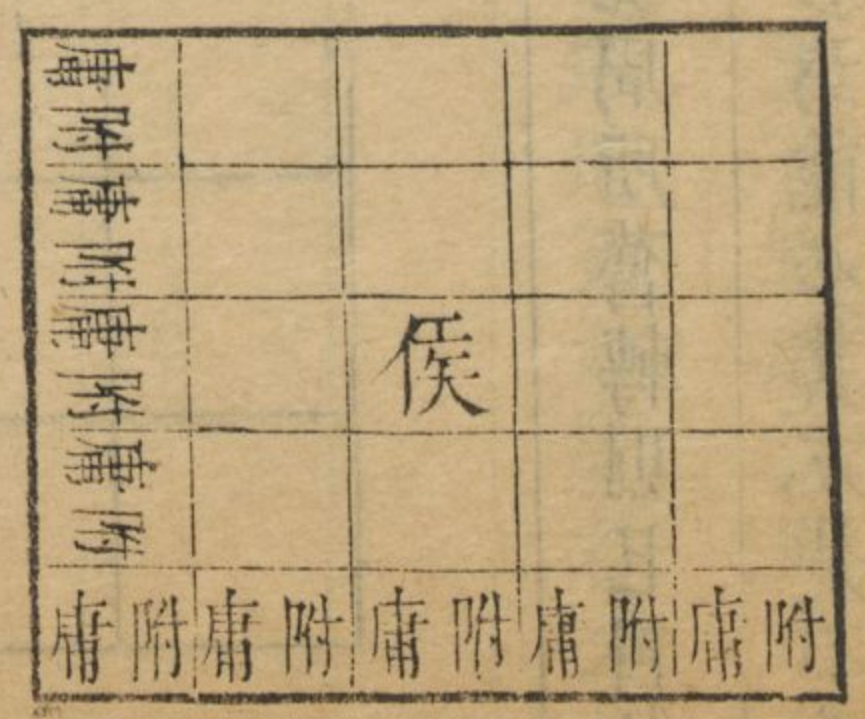 侯
附庸附庸附庸附庸附庸
附庸附庸附庸附庸